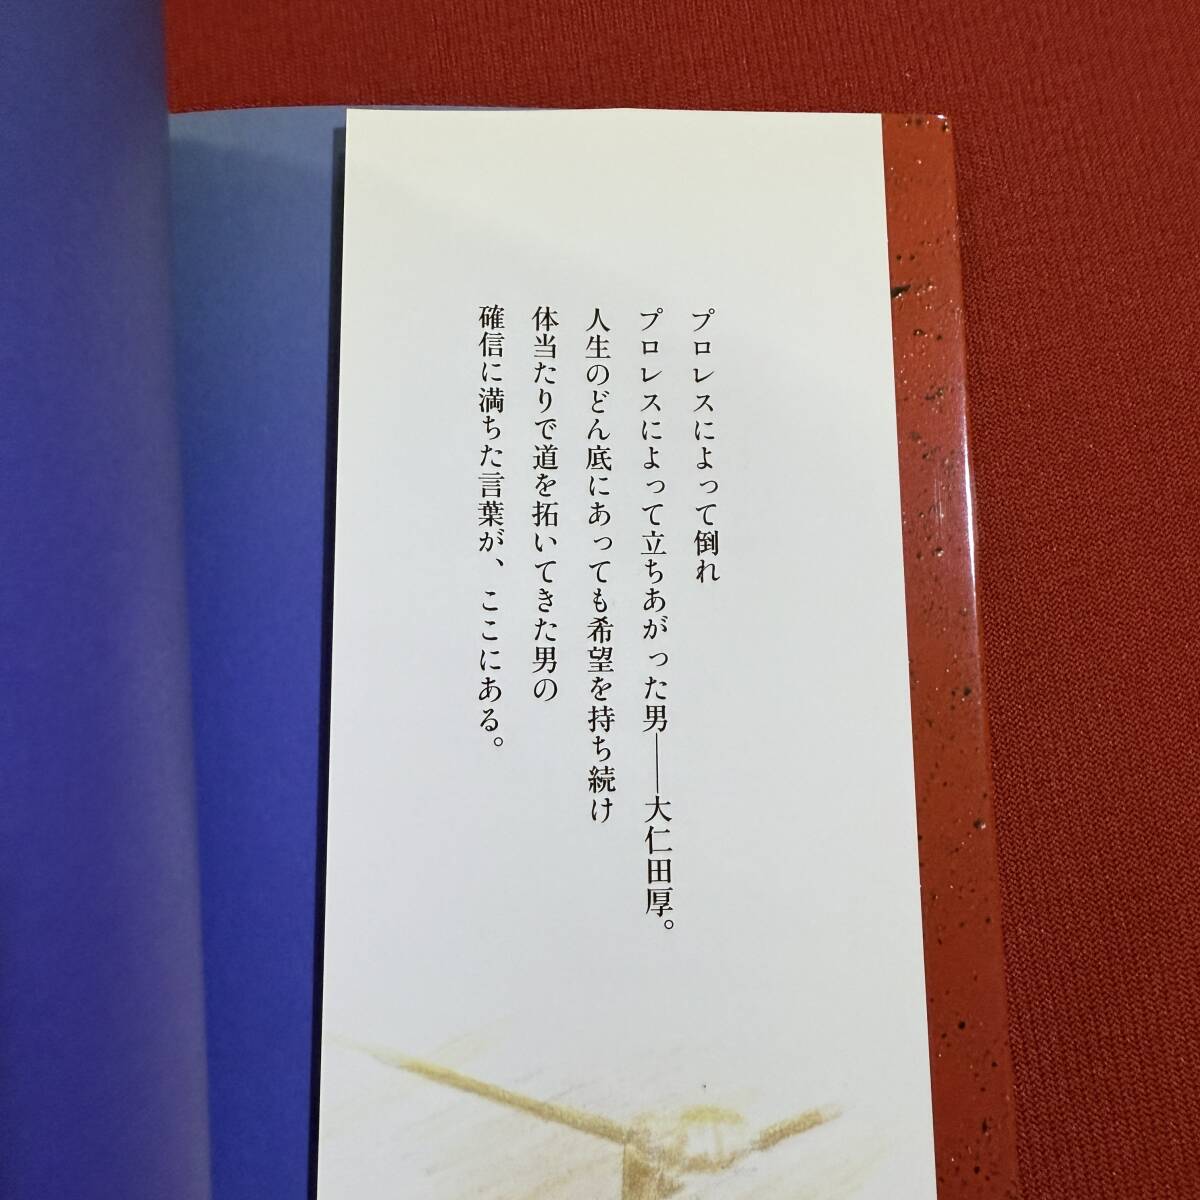 プロレスによって倒れ
プロレスによって立ちあがった男――大仁田厚。
人生のどん底にあっても希望を持ち続け
体当たりで道を拓いてきた男の
確信に満ちた言葉が、ここにある。